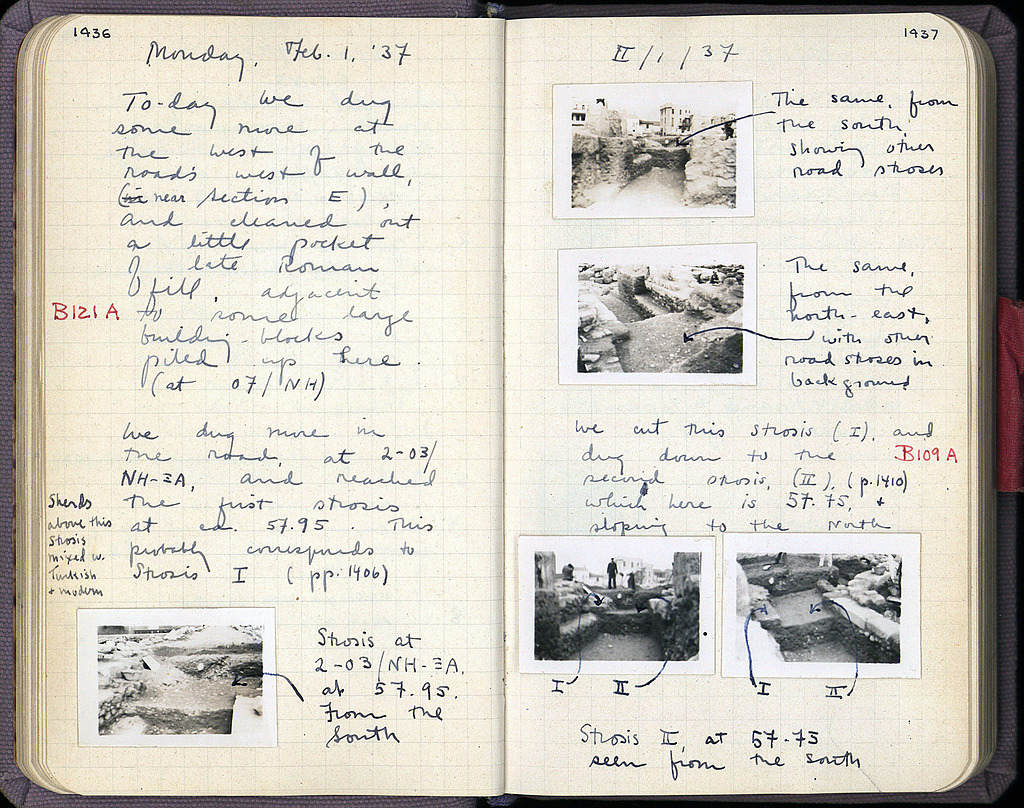 1436
Monday, Feb. 1, '37
To-day we dug
some more at
the west of the
road's west wall,
(in near section E),
and cleaned out
a little pocket
of late Roman
fill, adjacent
B121A
to some large
building-blocks
piled up here.
(at 07/NH)
We dug more in
the road, at 2-03/
NH-ΞA, and reached
the first strosis
at ca. 57.95. This
probably corresponds to
Strosis I (pp. 1406)
Sherds
above this
strosis
mixed w.
Turkish
+ modern
Strosis at
2-03/NH-ΞA.
at 57.95.
From the
South
1437
II/1/37
The same, from
the south,
showing other
road stroses
The same,
from the
north-east,
with other
road stroses in
background
We cut this strosis (I), and
dug down to the
B109A
second strosis, (II), (p.1410)
which here is 57.75, +
sloping to the North
I II
I II
Strosis II, at 57.75
seen from the south